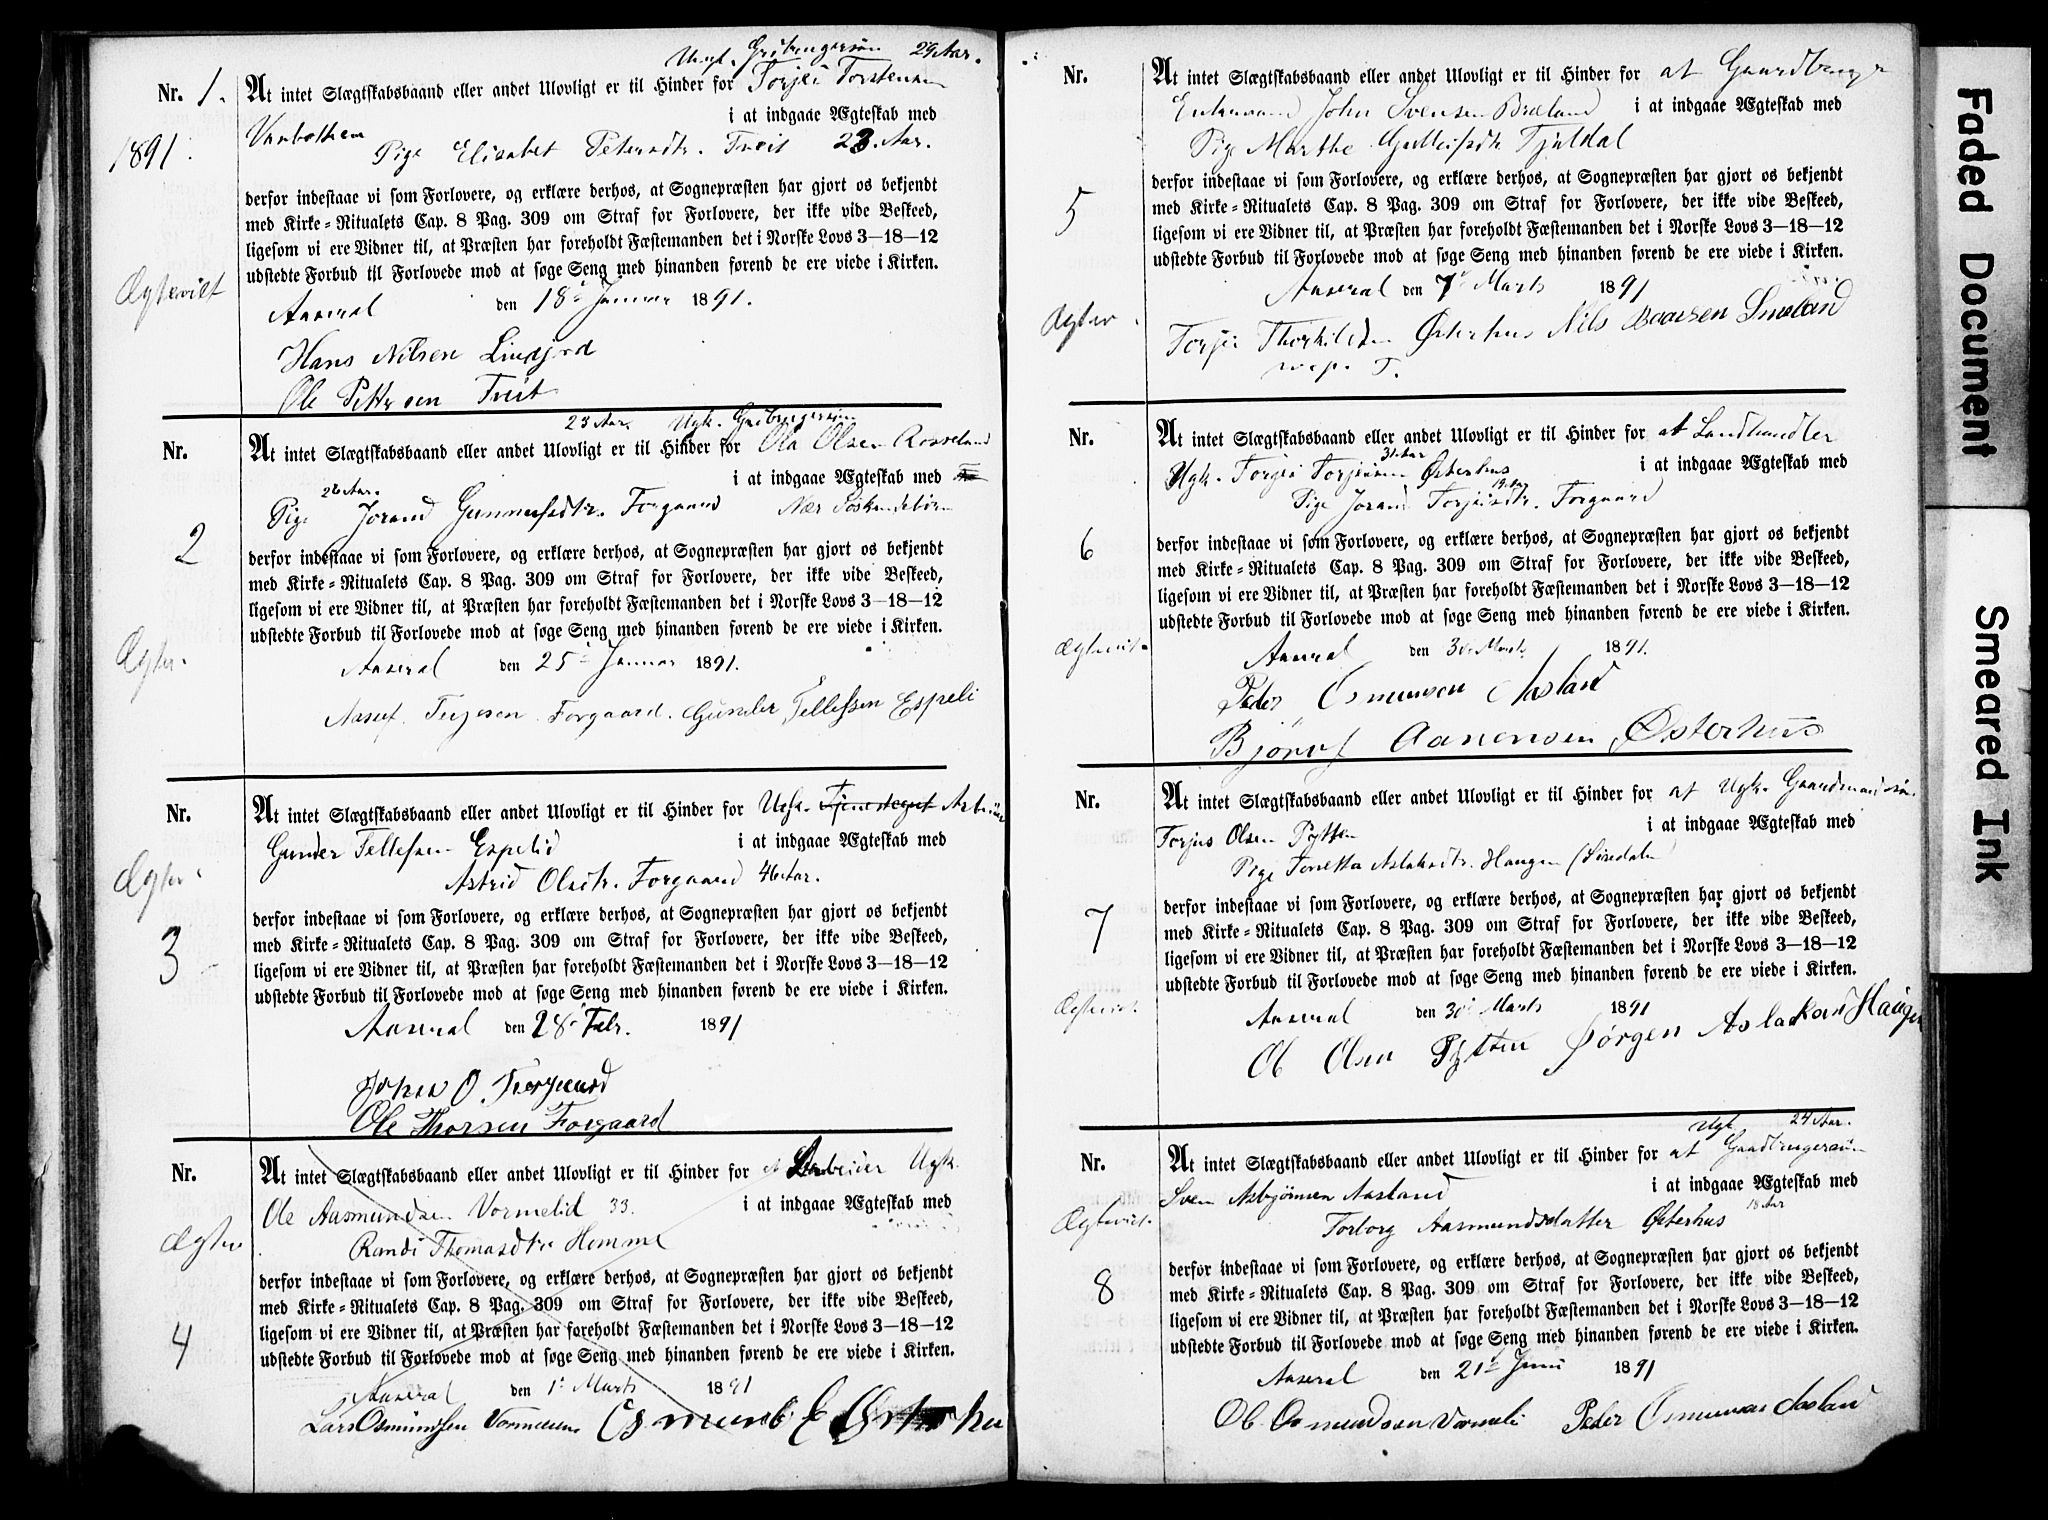 Ungk. Grdbrugersøn 29 Aar.
Nr. 1. At intet Slægtskabsbaand eller andet Ulovligt er til Hinder for Torjei Torstensen
i at indgaae Ægteskab med
1891.
Pige Elisabet Petersdtr. Tveit 23 Aar.
derfor indestaae vi som Forlovere, og erklære derhos, at Sognepræsten har gjort os bekjendt
med Kirke-Ritualets Cap. 8 Pag. 309 om Straf for Forlovere, der ikke vide Beskeed,
ligesom vi ere Vidner til, at Præsten har foreholdt Fæstemanden det i Norske Lovs 3—18—12
udstedte Forbud til Forlovede mod at søge Seng med hinanden førend de ere viede i Kirken.
Ægteviet
Aaseral den 18de Januar 1891.
Hans Nilsen Lindjord
Ole Pettersen Tveit
23 Aar. Ugk. Gaardbrugersøn
Nr. At intet Slægtskabsbaand eller andet Ulovligt er til Hinder for Ola Olsen Rosseland
i at indgaae Ægteskab med
26 Aar.
Pige Jorand Gunnufsdtr. Forgaard Nær Søskendebørn
2
derfor indestaae vi som Forlovere, og erklære derhos, at Sognepræsten har gjort os bekjendt
med Kirke-Ritualets Cap. 8 Pag. 309 om Straf for Forlovere, der ikke vide Beskeed,
ligesom vi ere Vidner til, at Præsten har foreholdt Fæstemanden det i Norske Lovs 3—18—12
udstedte Forbud til Forlovede mod at søge Seng med hinanden førend de ere viede i Kirken.
Ægtev.
Aaseral den 25de Januar 1891.
Aasuf Terjesen Forgaard. Gunder Tellefsen Espeli
Nr. At intet Slægtskabsbaand eller andet Ulovligt er til Hinder for Ugk. Tjenestegut Arbeider
Gunder Tellefsen Espelid i at indgaae Ægteskab med
Ægtev.
Astrid Olsdtr. Forgaard 46 Aar.
3
derfor indestaae vi som Forlovere, og erklære derhos, at Sognepræsten har gjort os bekjendt
med Kirke-Ritualets Cap. 8 Pag. 309 om Straf for Forlovere, der ikke vide Beskeed,
ligesom vi ere Vidner til, at Præsten har foreholdt Fæstemanden det i Norske Lovs 3—18—12
udstedte Forbud til Forlovede mod at søge Seng med hinanden førend de ere viede i Kirken.
Aaseral den 28de Febr. 1891
O. Forgaard
Ole Thorsen Forgaard
Nr. At intet Slægtskabsbaand eller andet Ulovligt er til Hinder for at Arbeider Ugk.
Ole Aasmundsen Vormelid 33. i at indgaae Ægteskab med
Ægtev
Randi Thomasdtr Homme
derfor indestaae vi som Forlovere, og erklære derhos, at Sognepræsten har gjort os bekjendt
med Kirke-Ritualets Cap. 8 Pag. 309 om Straf for Forlovere, der ikke vide Beskeed,
4
ligesom vi ere Vidner til, at Præsten har foreholdt Fæstemanden det i Norske Lovs 3—18—12
udstedte Forbud til Forlovede mod at søge Seng med hinanden førend de ere viede i Kirken.
Aaseral den 1de Marts 1891
Lars Osmundsen
Nr. At intet Slægtskabsbaand eller andet Ulovligt er til Hinder for at Gaardbruger
Enkemand John Svensen Bræland i at indgaae Ægteskab med
Pige Marthe
5
derfor indestaae vi som Forlovere, og erklære derhos, at Sognepræsten har gjort os bekjendt
med Kirke-Ritualets Cap. 8 Pag. 309 om Straf for Forlovere, der ikke vide Beskeed,
ligesom vi ere Vidner til, at Præsten har foreholdt Fæstemanden det i Norske Lovs 3—18—12
udstedte Forbud til Forlovede mod at søge Seng med hinanden førend de ere viede i Kirken.
Ægtev.
Aaseral den 7de Marts 1891
Torjei Thorkildsen Østerhus Nils Baarsen Smeland
m. p. P.
Nr. At intet Slægtskabsbaand eller andet Ulovligt er til Hinder for at Landhandler
31 Aar
Ugk. Torjei Torjeisen Østerhus i at indgaae Ægteskab med
19 Aar
Pige Jorand Torjeisdtr. Forgaard
6
derfor indestaae vi som Forlovere, og erklære derhos, at Sognepræsten har gjort os bekjendt
med Kirke-Ritualets Cap. 8 Pag. 309 om Straf for Forlovere, der ikke vide Beskeed,
ligesom vi ere Vidner til, at Præsten har foreholdt Fæstemanden det i Norske Lovs 3—18—12
udstedte Forbud til Forlovede mod at søge Seng med hinanden førend de ere viede i Kirken.
Ægteviet.
Aaseral den 30te Marts 1891.
Peder Osmundsen Aasland
Bjørulf Aanensen Østerhus
Nr. At intet Slægtskabsbaand eller andet Ulovligt er til Hinder for at Ugk. Gaardmandssøn
Torjus Olsen Pytten i at indgaae Ægteskab med
Pige Tonetta Aslaksdtr. Haugen (Siredalen
7
derfor indestaae vi som Forlovere, og erklære derhos, at Sognepræsten har gjort os bekjendt
med Kirke-Ritualets Cap. 8 Pag. 309 om Straf for Forlovere, der ikke vide Beskeed,
ligesom vi ere Vidner til, at Præsten har foreholdt Fæstemanden det i Norske Lovs 3—18—12
udstedte Forbud til Forlovede mod at søge Seng med hinanden førend de ere viede i Kirken.
Ægteviet.
Aaseral den 30te Marts 1891
Ole Olsen Pytten Jørgen Aslaksen Haugen
Ugk 24 Aar.
Nr. At intet Slægtskabsbaand eller andet Ulovligt er til Hinder for at Gaardbrugersøn
Sven Asbjørnsen Aasland i at indgaae Ægteskab med
Ægteviet.
18 Aar
Torborg Aasmundsdatter Østerhus
8
derfor indestaae vi som Forlovere, og erklære derhos, at Sognepræsten har gjort os bekjendt
med Kirke-Ritualets Cap. 8 Pag. 309 om Straf for Forlovere, der ikke vide Beskeed,
ligesom vi ere Vidner til, at Præsten har foreholdt Fæstemanden det i Norske Lovs 3—18—12
udstedte Forbud til Forlovede mod at søge Seng med hinanden førend de ere viede i Kirken.
Aaseral den 21de Juni 1891
Ole Osmundsen Vormeli Peder Osmundsen Aasland
Faded Document
Smeared Ink